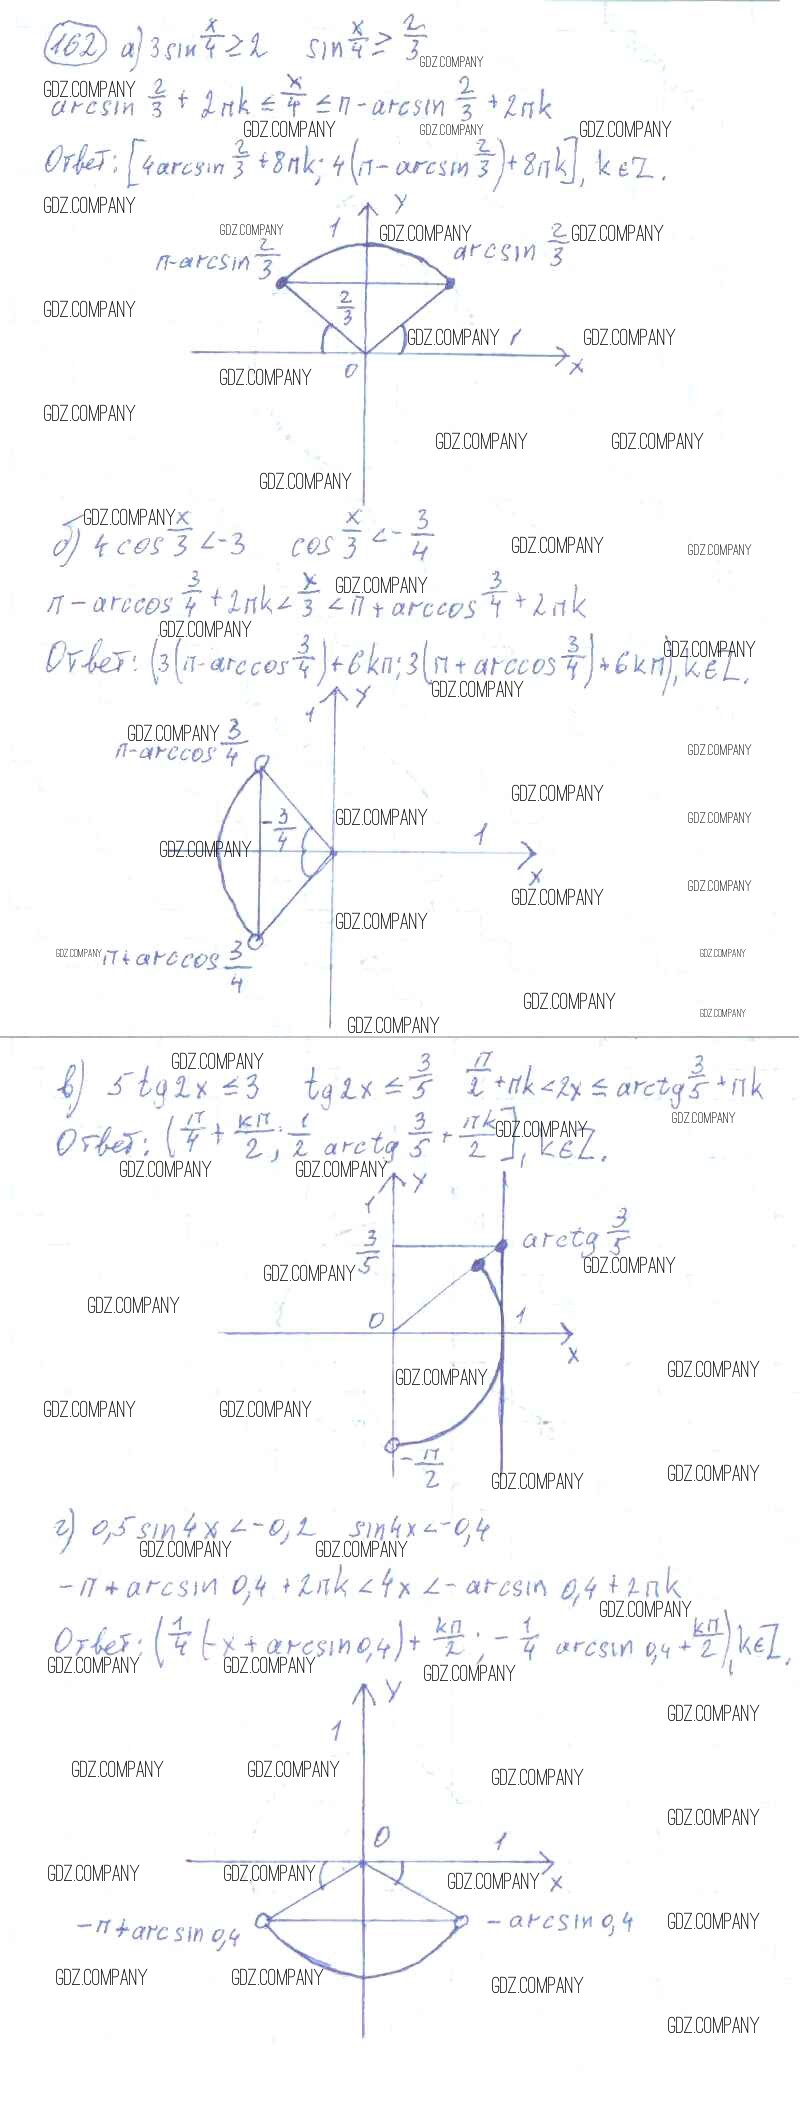 162 а) 3 sin x/4 ≥ 2 sin x/4 ≥ 2/3
arcsin 2/3 + 2πk ≤ x/4 ≤ π - arcsin 2/3 + 2πk
Ответ: [4 arcsin 2/3 + 8πk; 4(π - arcsin 2/3) + 8πk], k ∈ Z.
1 y
π-arcsin 2/3 arcsin 2/3
2/3
1
0 x
б) 4 cos x/3 < -3 cos x/3 < -3/4
π - arccos 3/4 + 2πk < x/3 < π + arccos 3/4 + 2πk
Ответ: (3(π-arccos 3/4) + 6kπ; 3(π + arccos 3/4) + 6kπ), k ∈ Z.
1 y
π-arccos 3/4
-3/4 1
x
π+arccos 3/4
в) 5 tg 2x ≤ 3 tg 2x ≤ 3/5 π/2 + πk < 2x ≤ arctg 3/5 + πk
Ответ: (π/4 + kπ/2; 1/2 arctg 3/5 + πk/2], k ∈ Z.
1 y
3/5 arctg 3/5
0 1
x
-π/2
г) 0,5 sin 4x < -0,2 sin 4x < -0,4
-π + arcsin 0,4 + 2πk < 4x < - arcsin 0,4 + 2πk
Ответ: (1/4 (-x + arcsin 0,4) + kπ/2; -1/4 arcsin 0,4 + kπ/2), k ∈ Z.
y
1
0 1
x
-π+arcsin 0,4 -arcsin 0,4
GDZ.COMPANY